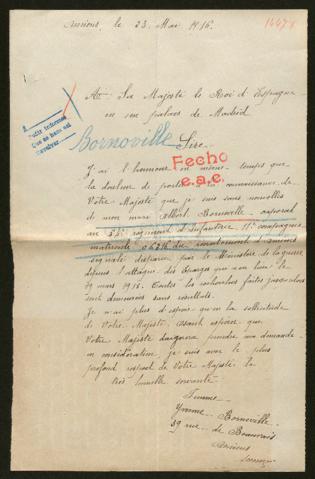 Amiens, le 23 Mai 1916.
A Sa Majesté le Roi d'Espagne
en son palais de Madrid
Bornoville
Sire
Fecho
J'ai l'honneur en même temps que
la douleur de porter à la connaissance de
Votre Majesté que je suis sans nouvelles
de mon mari Albert Bornoville, caporal
au régiment d'Infanterie 11e compagnie
matricule du recrutement d'Amiens
signalé disparu par le Ministère de la guerre
depuis l'attaque des Eparges qui a eu lieu le
mars 1915. Toutes les recherches faites jusqu'alors
sont demeurées sans résultats.
Je n'ai plus d'espoir qu'en la sollicitude
de Votre Majesté, osant espérer que
Votre Majesté daignera prendre ma demande
en considération, je suis avec le plus
profond respect de Votre Majesté la
très humble servante
Femme
Yvonne Bornoville
59 rue de Beauvais
Amiens
Somme